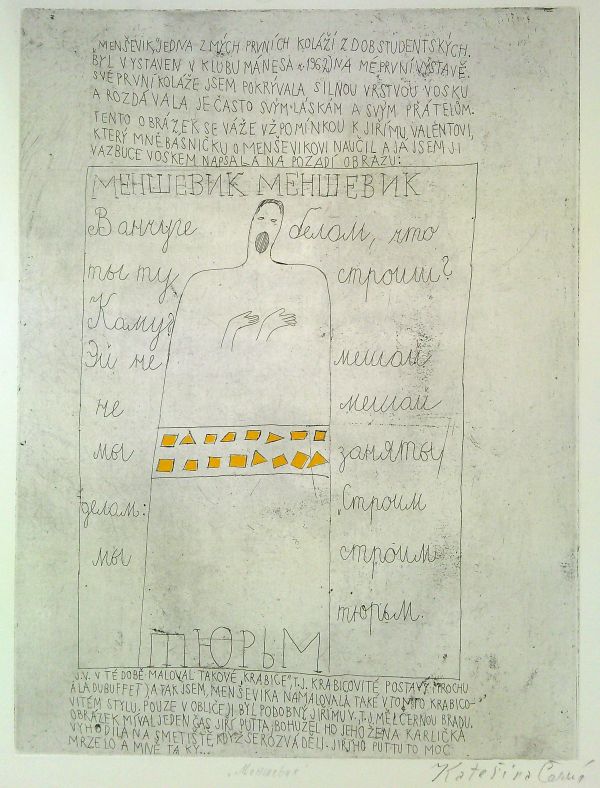 „MENŠEVIK“, JEDNA Z MÝCH PRVNÍCH KOLÁŽÍ Z DOB STUDENTSKÝCH.
BYL VYSTAVEN V KLUBU MÁNESA (r. 1962) NA MÉ PRVNÍ VÝSTAVĚ.
SVÉ PRVNÍ KOLÁŽE JSEM POKRÝVALA SILNOU VRSTVOU VOSKU
A ROZDÁVALA JE ČASTO SVÝM LÁSKÁM A SVÝM PŘÁTELŮM.
TENTO OBRÁZEK SE VÁŽE VZPOMÍNKOU K JIŘÍMU VALENTOVI,
KTERÝ MNĚ BÁSNIČKU O MENŠEVIKOVI NAUČIL A JÁ JSEM JI
VAZBUCE VOSKEM NAPSALA NA POZADÍ OBRAZU:
МЕНШЕВИК МЕНШЕВИК
В анчуге белом, что
ты ту строиш?
Камуд
Эй не мешай
не мешай
мы заняты
делом: Строим
мы строим
тюрьм.
ТЮРЬМ
J.V. V TÉ DOBĚ MALOVAL TAKOVÉ „KRABICE“, T.J. KRABICOVITÉ POSTAVY (TROCHU
À LA DUBUFFET) A TAK JSEM MENŠEVIKA NAMALOVALA TAKÉ V TOMTO KRABICO-
VITÉM STYLU. POUZE V OBLIČEJI BYL PODOBNÝ JIŘÍMU V., T.J. MĚL ČERNOU BRADU.
OBRÁZEK MÍVAL JEDEN ČAS JIŘÍ PUTTA, BOHUŽEL HO JEHO ŽENA KARLIČKA
VYHODILA NA SMETIŠTĚ, KDYŽ SE ROZVÁDĚLI. JIŘÍHO PUTTU TO MOC
MRZELO A MNĚ TAKY...
„Menševik“
Kateřina Černá